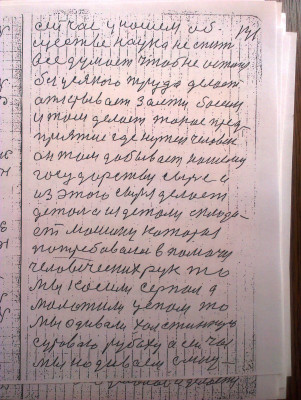 сичас у ношем об
141
ществе наука не спит
все думает чтоб не
без целного труда делает
открывает залти босни
и там делает токое пред
приятие где нужен человек
он там добывает нашему
государству сырье и
из этого сырья делает
детали и з детали создо
ет мошину которая
потребовала в помочь
человеческих рук то
мы косили серпом а
молотили цепом то
мы одивали холстинную
суроваю рубаху а сичас
мы нодиваем